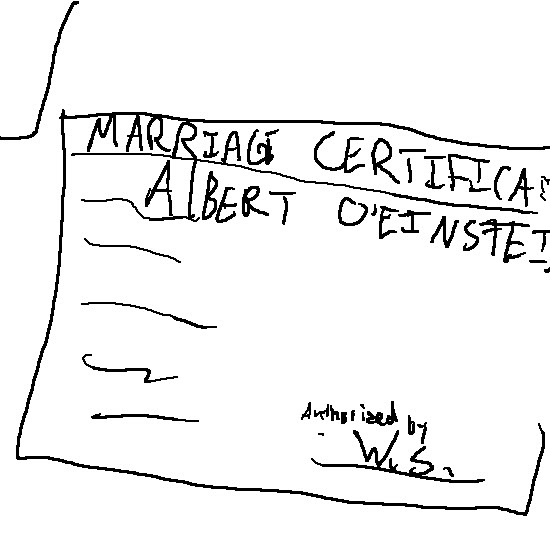 MARRIAGE CERTIFICA
AlBERT O'EINSTEI
Authorized by
W.S.